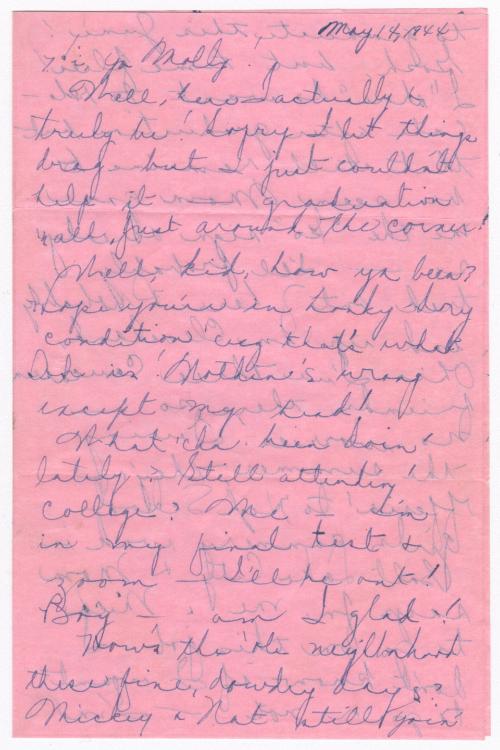 May 14, 1944
Hi ya Molly!
Well, here I actually &
truly be! Sorry I let things
drag but I just couldn't
help it — graduation
'n all, just around the corner!
Well, kid, how ya been?
Hope you're in hunky dory
condition cuz that's what
I is! Nothin's wrong
except my head!
What cha been doin'
lately? Still attending
college? Me — I'm
in my final test &
zoom — I'll be out!
Boy — am I glad!
How's the ole neighborhood
these fine, dowdry days?
Mickey & Nat still goin'